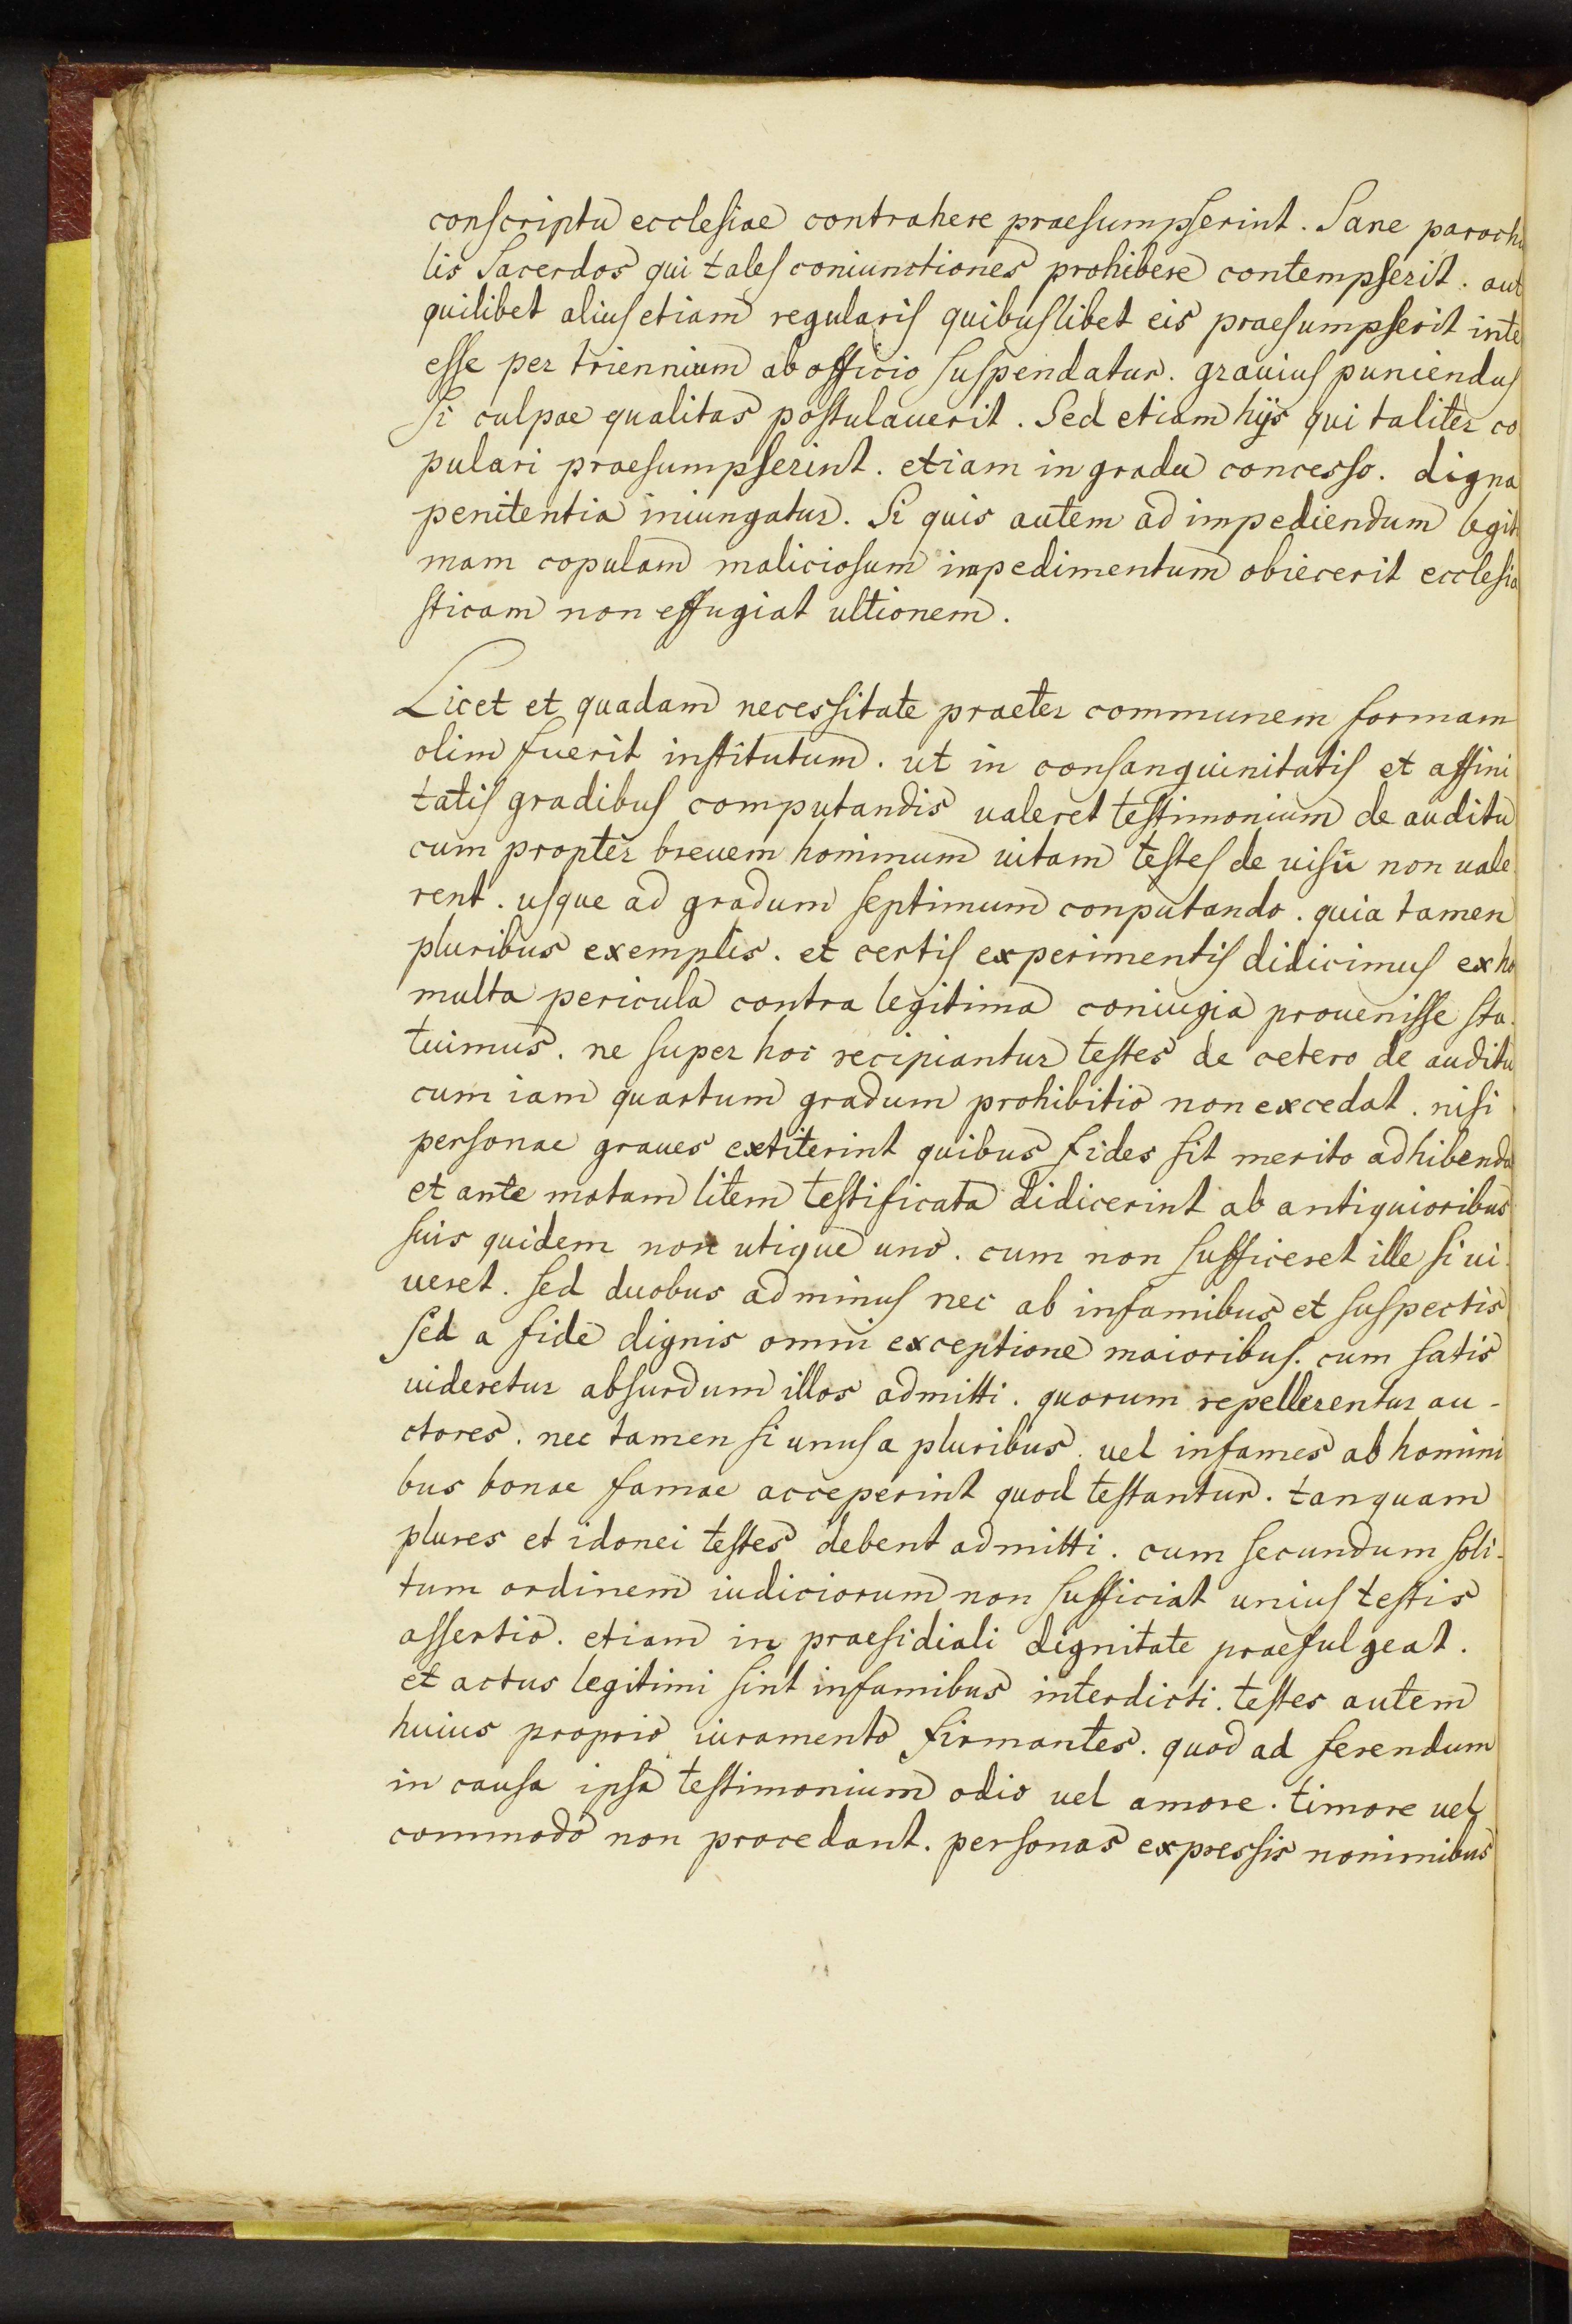 conscriptu ecclesiae contrahere praesumpserint. Sane parochi
lis Sacerdos qui tales coniunctiones prohibere contempserit. aut
quilibet alius etiam regularis quibuslibet eis praesumpserit inte
esse per triennium ab officio suspendatur. grauius puniendus
Si culpae qualitas postulauerit. Sed etiam hijs qui taliter co
pulari praesumpserint. etiam in gradu concesso. digna
penitentia iniungatur. Si quis autem ad impediendum legit
mam copulam maliciosum impedimentum obiecerit ecclesia
sticam non effugiat ultionem.
Licet et quadam necessitate praeter communem formam
olim fuerit institutum. ut in consanguinitatis et affini
tatis gradibus computandis ualeret testimonium de auditu
cum propter breuem hominum uitam testes de uisu non uale
rent. usque ad gradum septimum conputando. quia tamen
pluribus exemplis. et certis experimentis didicimus ex ho
multa pericula contra legitima coniugia prouenisse sta.
tuimus. ne super hoc recipiantur testes de cetero de auditu
cum iam quartum gradum prohibitio non excedat. nisi
personae graues extiterint quibus fides sit merito adhibenda
et ante motam litem testificata didicerint ab antiquioribus
suis quidem non utique uno. cum non sufficeret ille si ui.
ueret. sed duobus ad minus nec ab infamibus et suspectis
sed a fide dignis omni exceptione maioribus. cum satis
uideretur absurdum illos admitti. quorum repellerentur au-
ctores. nec tamen si unus a pluribus. uel infames ab homini
bus bonae famae acceperint quod testantur. tanquam
plures et idonei testes debent admitti. cum secundum soli-
tum ordinem iudiciorum non sufficiat unius testis
assertio. etiam in praesidiali dignitate praefulgeat.
et actus legitimi sint infamibus interdicti. testes autem
huius proprio iuramento firmantes. quod ad ferendum
in causa ipsa testimonium odio uel amore. timore uel
commodo non procedant. personas expressis nominibus